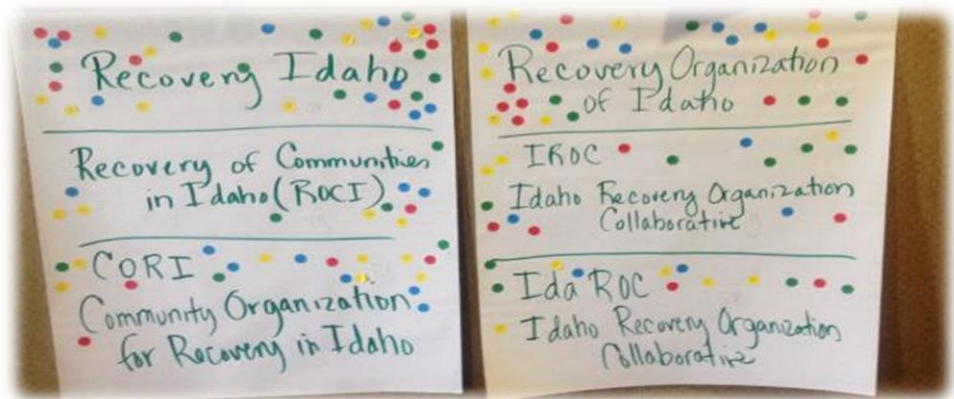 Recovery Idaho
Recovery of Communities
in Idaho (ROCI)
CORI
Community Organization
for Recovery in Idaho
Recovery Organization
of Idaho
IROC
Idaho Recovery Organization
Collaborative
Ida ROC
Idaho Recovery Organization
Collaborative